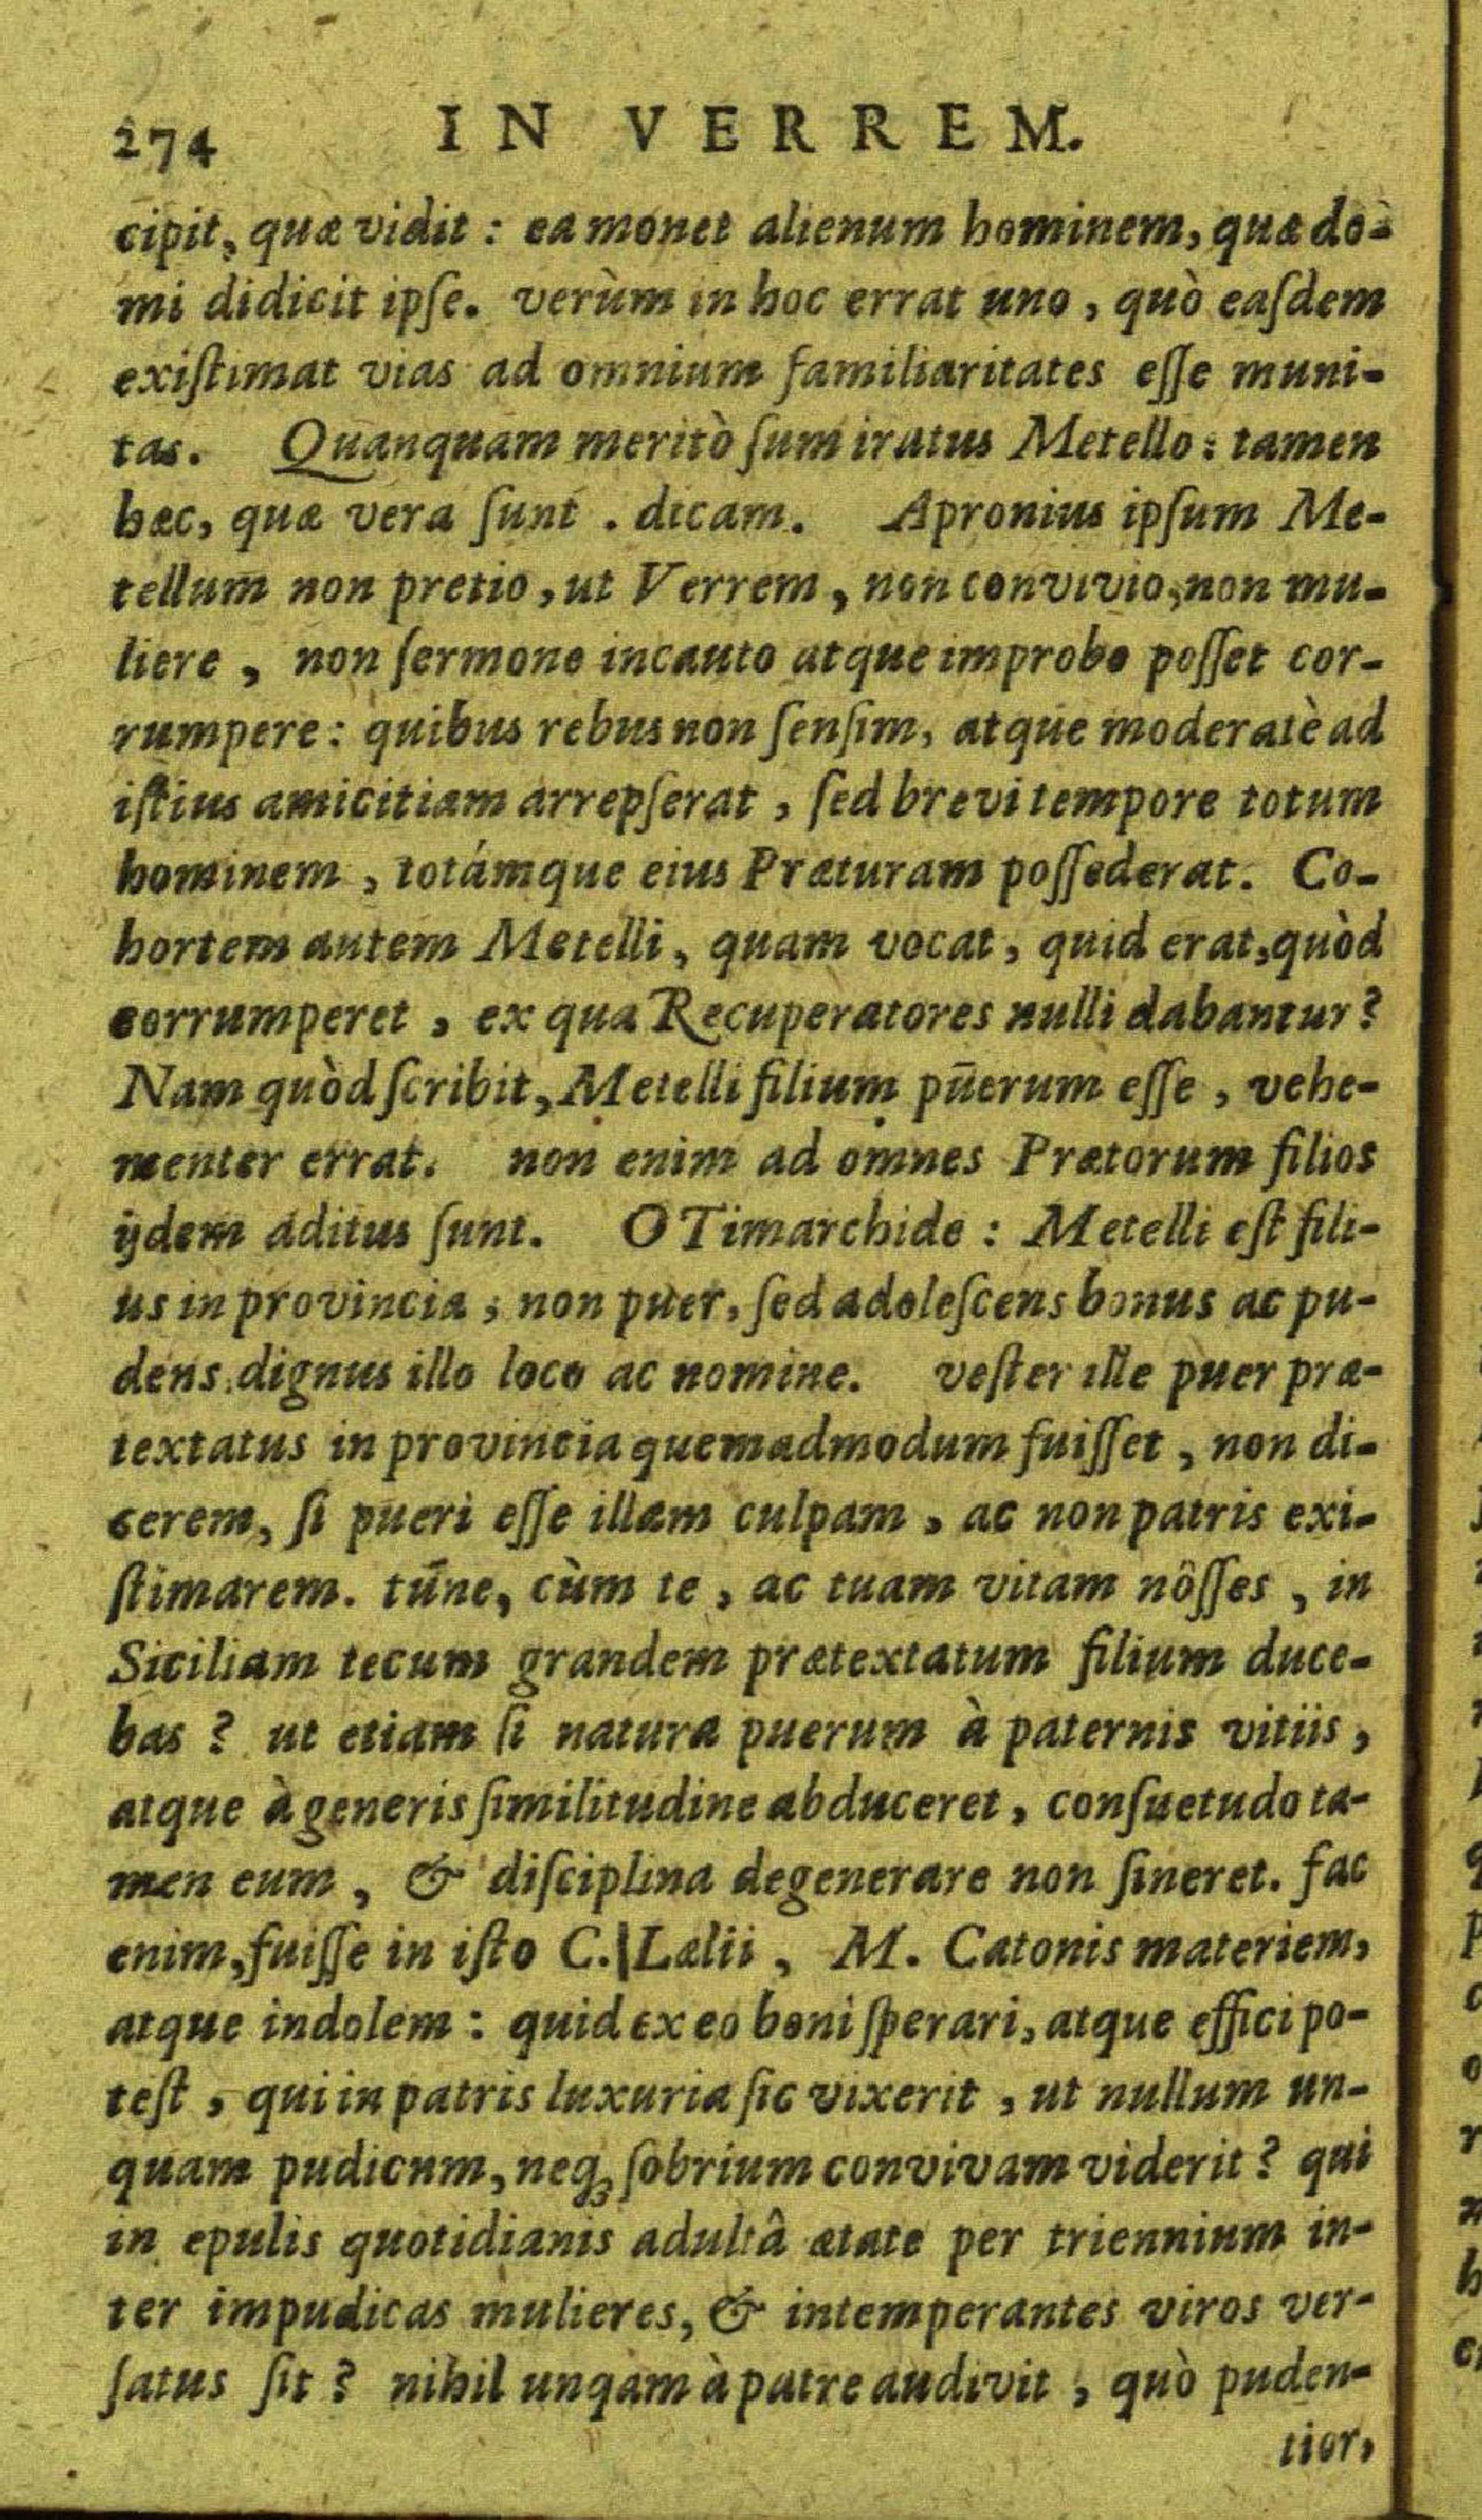 274 IN VERREM.
cipit, quæ vidit : ea monet alienum hominem, quæ do-
mi didicit ipſe. verùm in hoc errat uno , quò eaſdem
exiſtimat vias ad omnium familiaritates eſſe muni-
tas. Quanquam meritò ſum iratus Metello : tamen
hæc, quæ vera ſunt . dicam. Apronius ipſum Me-
tellum non pretio , ut Verrem , non convivio, non mu-
liere , non ſermone incauto atque improbo poſſet cor-
rumpere : quibus rebus non ſenſim, atque moderatè ad
iſtius amicitiam arrepſerat , ſed brevi tempore totum
hominem , totámque eius Præturam poſſederat. Co-
hortem autem Metelli , quam vocat , quid erat, quòd
corrumperet , ex qua Recuperatores nulli dabantur ?
Nam quòd ſcribit, Metelli filium pūerum eſſe , vehe-
menter errat. non enim ad omnes Prætorum filios
ijdem aditus ſunt. O Timarchide : Metelli eſt fili-
us in provincia , non puer, ſed adoleſcens bonus ac pu-
dens, dignus illo loco ac nomine. veſter ille puer præ-
textatus in provincia quemadmodum fuiſſet , non di-
cerem, ſi pueri eſſe illam culpam , ac non patris exi-
ſtimarem. tūne, cùm te , ac tuam vitam nôſſes , in
Siciliam tecum grandem prætextatum filium duce-
bas ? ut etiam ſi natura puerum à paternis vitiis ,
atque à generis ſimilitudine abduceret , conſuetudo ta-
men eum , & diſciplina degenerare non ſineret. fac
enim, fuiſſe in iſto C. Lælii , M. Catonis materiem,
atque indolem : quid ex eo boni ſperari, atque effici po-
teſt , qui in patris luxuria ſic vixerit , ut nullum un-
quam pudicum, neq; ſobrium convivam viderit ? qui
in epulis quotidianis adultâ ætate per triennium in-
ter impudicas mulieres, & intemperantes viros ver-
ſatus ſit ? nihil unqam à patre audivit , quò puden-
tior,